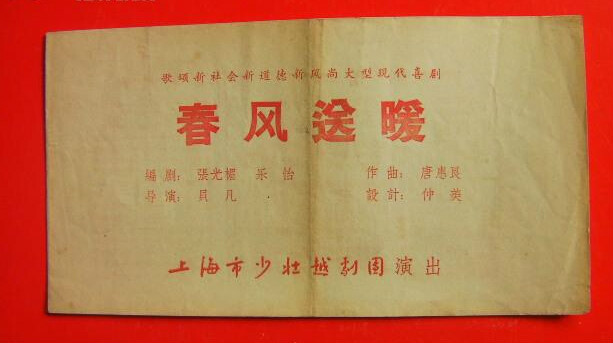 歌颂新社会新道德新风尚大型现代喜剧
春风送暖
編劇：張光耀 乐怡 作曲：唐惠良
导演：貝凡 設計：仲美
上海市少壮越劇团演出